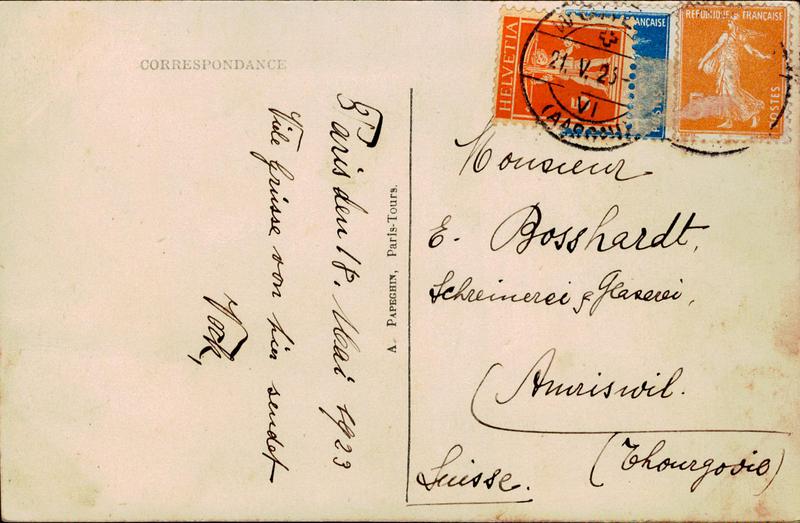 CORRESPONDANCE
Paris den 18. Mai 1923
Viele Grüsse von hier sendet
Vock,
A. PAPEGHIN, Paris-Tours.
HELVETIA
ANÇAISE
RÉPUBLIQUE FRANÇAISE
POSTES
21. V. 23
VI
(AARGAU)
Monsieur
E. Bosshardt,
Schreinerei & Glaserei,
Amriswil.
(Thourgovie)
Suisse.